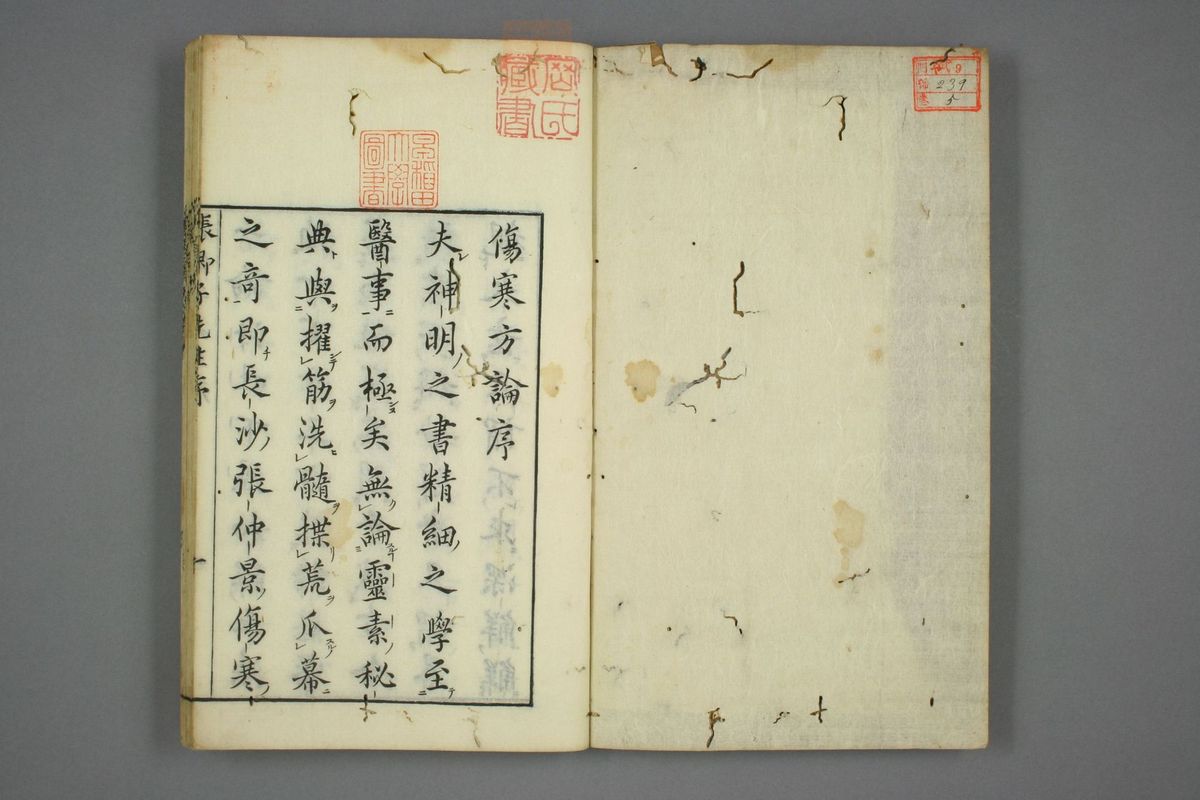 傷寒方論序
夫神明之書精細之學至
醫事而極矣無論靈素秘
典與擢筋洗髓揲荒爪幕
之奇即長沙張仲景傷寒
張卿子先生序
一
早稲田大學圖書
藏書
9
239
5